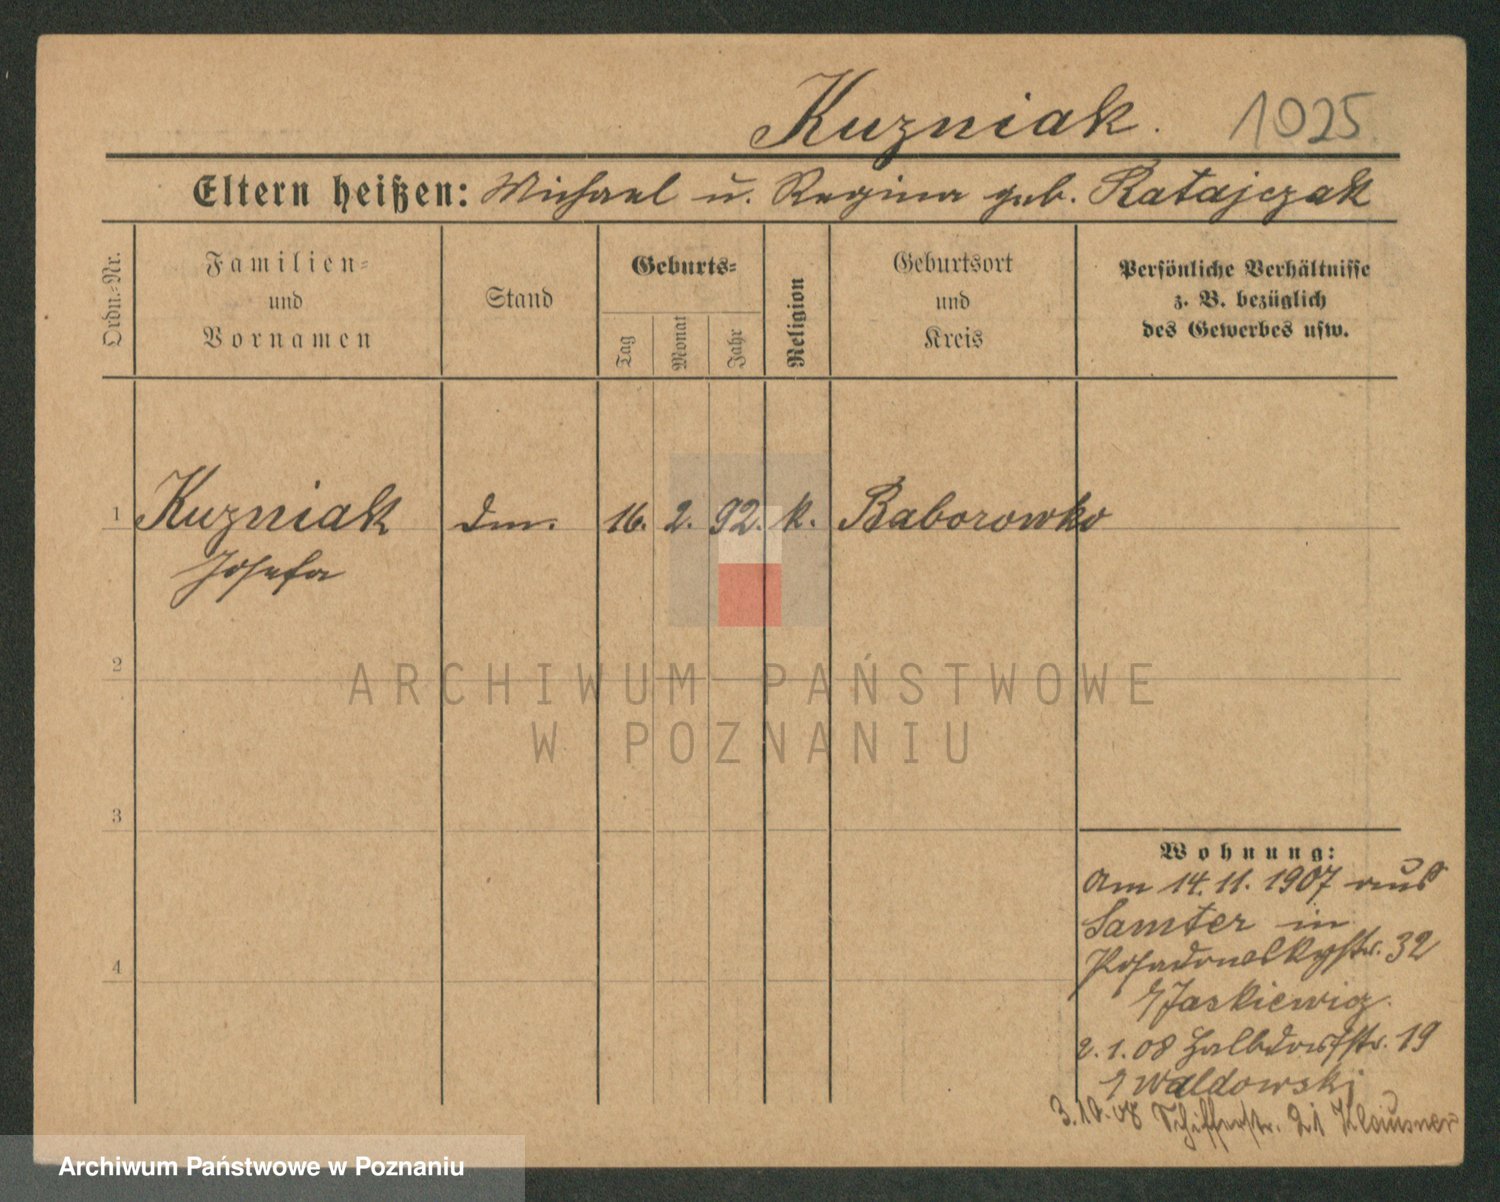 Kuzniak. 1025
Eltern heißen: Michael u. Regina geb. Ratajczak
Ordn.-Nr.
Familien-
und
Vornamen
Stand
Geburts-
Tag
Monat
Jahr
Religion
Geburtsort
und
Kreis
Persönliche Verhältnisse
z. B. bezüglich
des Gewerbes usw.
1 Kuzniak dm. 16. 2. 92. k. Baborowko
Josefa
2
ARCHIWUM PAŃSTWOWE
W POZNANIU
3
Wohnung:
am 14.11.1907 aus
Samter in
Posadowskystr. 32
Jaskiewicz.
4
2.1.08 Halbdorfstr. 19
Waldowski
3.10.08 Schifferstr. 21 Klausner
Archiwum Państwowe w Poznaniu